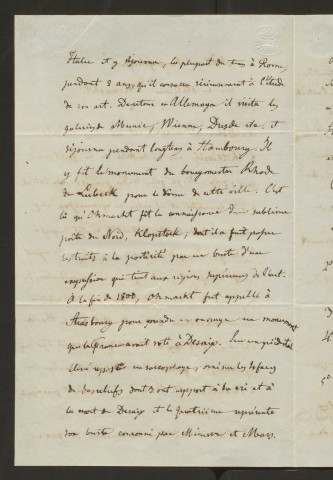 Italie et y séjourna, la plupart du tems à Rome,
pendant 3 ans, qu'il consacra sérieusement à l'étude
de son art. De retour en Allemagne il visita les
galeries de Munic, Vienne, Dresde etc. et
séjourna pendant longtems à Hambourg. Il
y fit le monument du bourgmestre Rhode
de Lubeck pour le dôme de cette ville. C'est
là qu'Ohmacht fit la connaissance du sublime
poète du Nord, Klopstock, dont il a fait passer
les traits à la postérité par un buste d'une
expression qui tient aux régions supérieures de l'art.
A la fin de 1800, Ohmacht fut appellé à
Strasbourg pour prendre en ouvrage un monument
que la France avait voté à Desaix.
élevé en sarcophage, orné sur les 4 faces
de bas reliefs dont 3 ont rapport à la vie et à
la mort de Desaix et le quatrième représente
son buste couronné par Minerve et Mars.